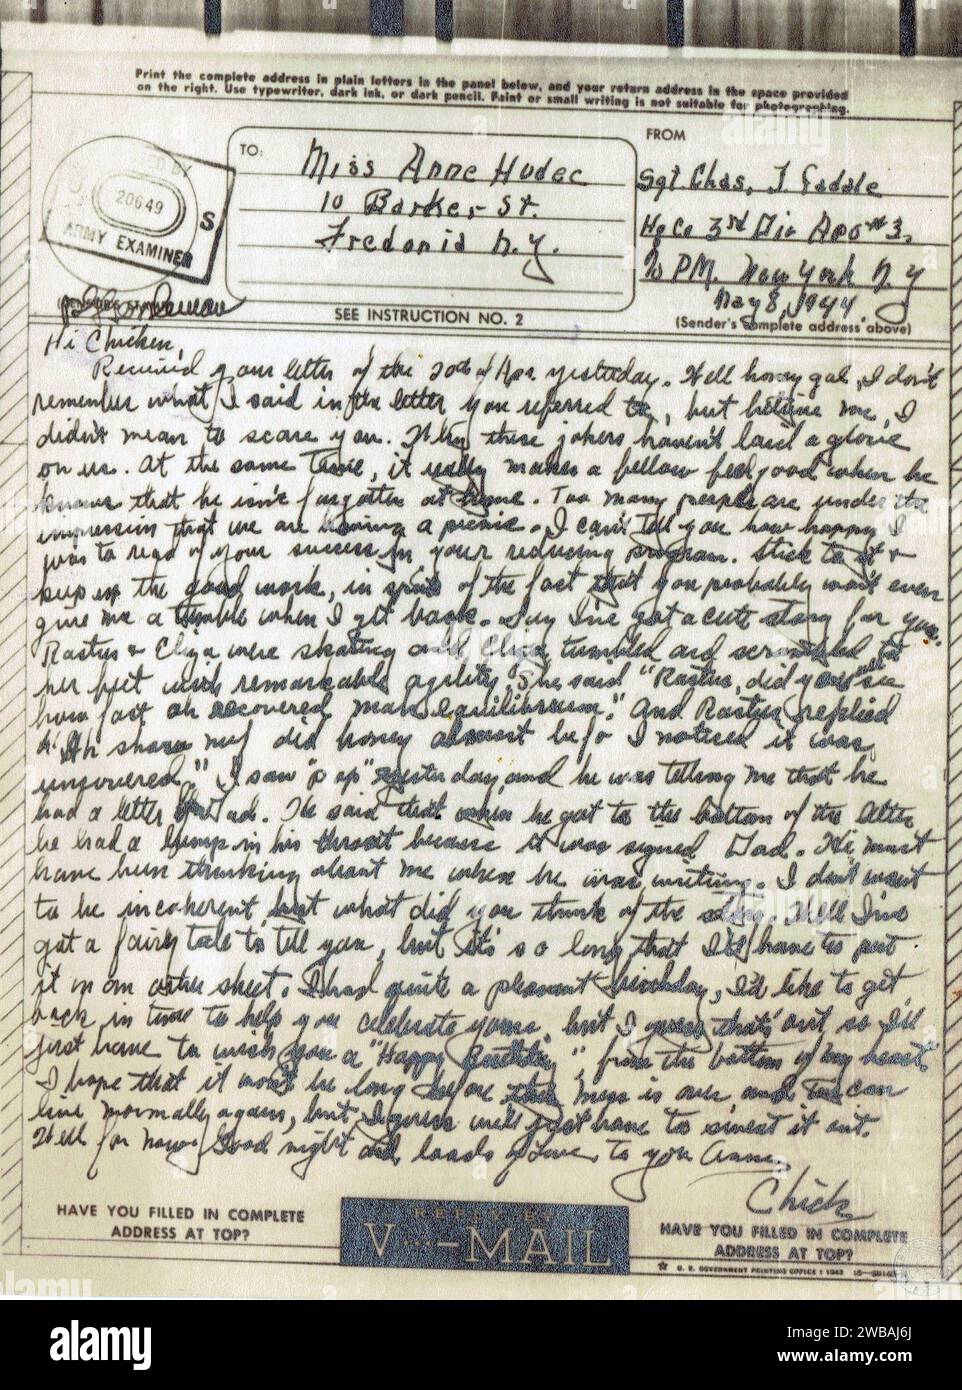 Print the complete address in plain letters in the panel below, and your return address in the space provided
on the right. Use typewriter, dark ink, or dark pencil. Faint or small writing is not suitable for photographing.
FROM
TO:
Miss Anne Hudec
10 Barker St.
Fredonia N.Y.
Sgt. Chas. J.
Hq Co 3rd Div APO #3,
℅ P.M. New York N.Y
May 8, 1944
(Sender's complete address above)
SEE INSTRUCTION NO. 2
BY
20649
S
ARMY EXAMINER
Hi Chicken,
Received your letter of the 20th of Apr yesterday. Well honey gal, I don't
remember what I said in the letter you referred to, but believe me, I
didn't mean to scare you. these jokers haven't laid a glove
on us. At the same time, it really makes a fellow feel good when he
knows that he isn't forgotten at home. Too many people are under the
impression that we are having a picnic. I can't tell you how happy I
was to read of your success in your reducing program. Stick to it +
keep up the good work, in spite of the fact that you probably won't even
give me a tumble when I get back. Say I've got a cute story for you.
Rastus + Eliza were skating and Eliza tumbled and scrambled to
her feet with remarkable agility. She said "Rastus, did you see
how fast ah recovered mah equilibrium." And Rastus replied
"Ah sho did honey almost befo I noticed it was
uncovered." I saw "Pop" yesterday, and he was telling me that he
had a letter from Tad. He said that when he got to the bottom of the letter
he had a lump in his throat because it was signed Tad. He must
have been thinking about me when he was writing. I don't want
to be incoherent, but what did you think of the story. Well I've
got a fairy tale to tell you, but it's so long that I'll have to put
it on another sheet. I had quite a pleasant birthday, I'd like to get
back in time to help you celebrate yours, but I guess that's out so I'll
just have to wish you a "Happy Birthday", from the bottom of my heart.
I hope that it won't be long before this mess is over, and we can
live normally again, but I guess we'll just have to sweat it out.
Well for now. Good night and loads of love to you Anne,
Chick
HAVE YOU FILLED IN COMPLETE
ADDRESS AT TOP?
REPLY BY
V···-MAIL
HAVE YOU FILLED IN COMPLETE
ADDRESS AT TOP?
U. S. GOVERNMENT PRINTING OFFICE : 1943
alamy
Image ID: 2WBAJ6J
www.alamy.com